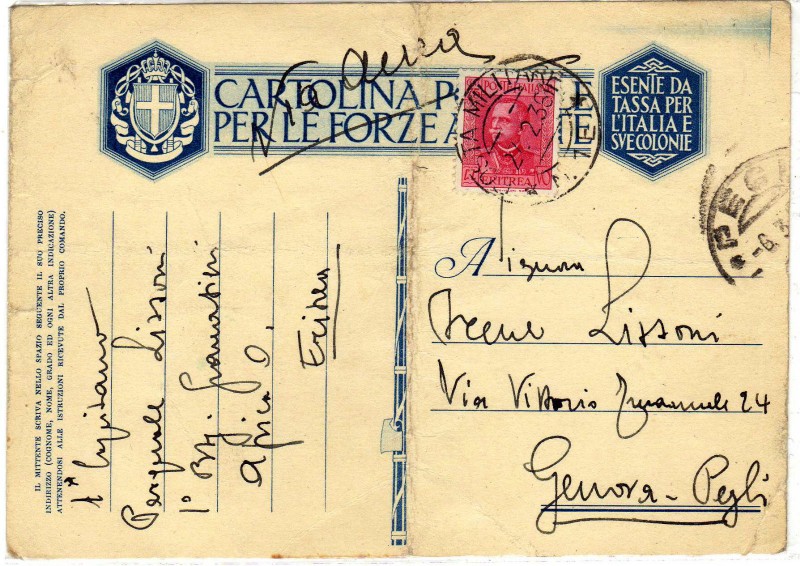 Via aerea
CARTOLINA P E
PER LE FORZE A E
ESENTE DA
TASSA PER
L'ITALIA E
SVE COLONIE
ERITREA
PEG
-6.3
IL MITTENTE SCRIVA NELLO SPAZIO SEGUENTE IL SUO PRECISO
INDIRIZZO (COGNOME, NOME, GRADO ED OGNI ALTRA INDICAZIONE)
ATTENENDOSI ALLE ISTRUZIONI RICEVUTE DAL PROPRIO COMANDO.
1° Capitano
Pasquale Lissoni
1° Brig. Granatieri
Africa O.
Eritrea
A Signora
Irene Lissoni
Via Vittorio Emanuele 24
Genova - Pegli